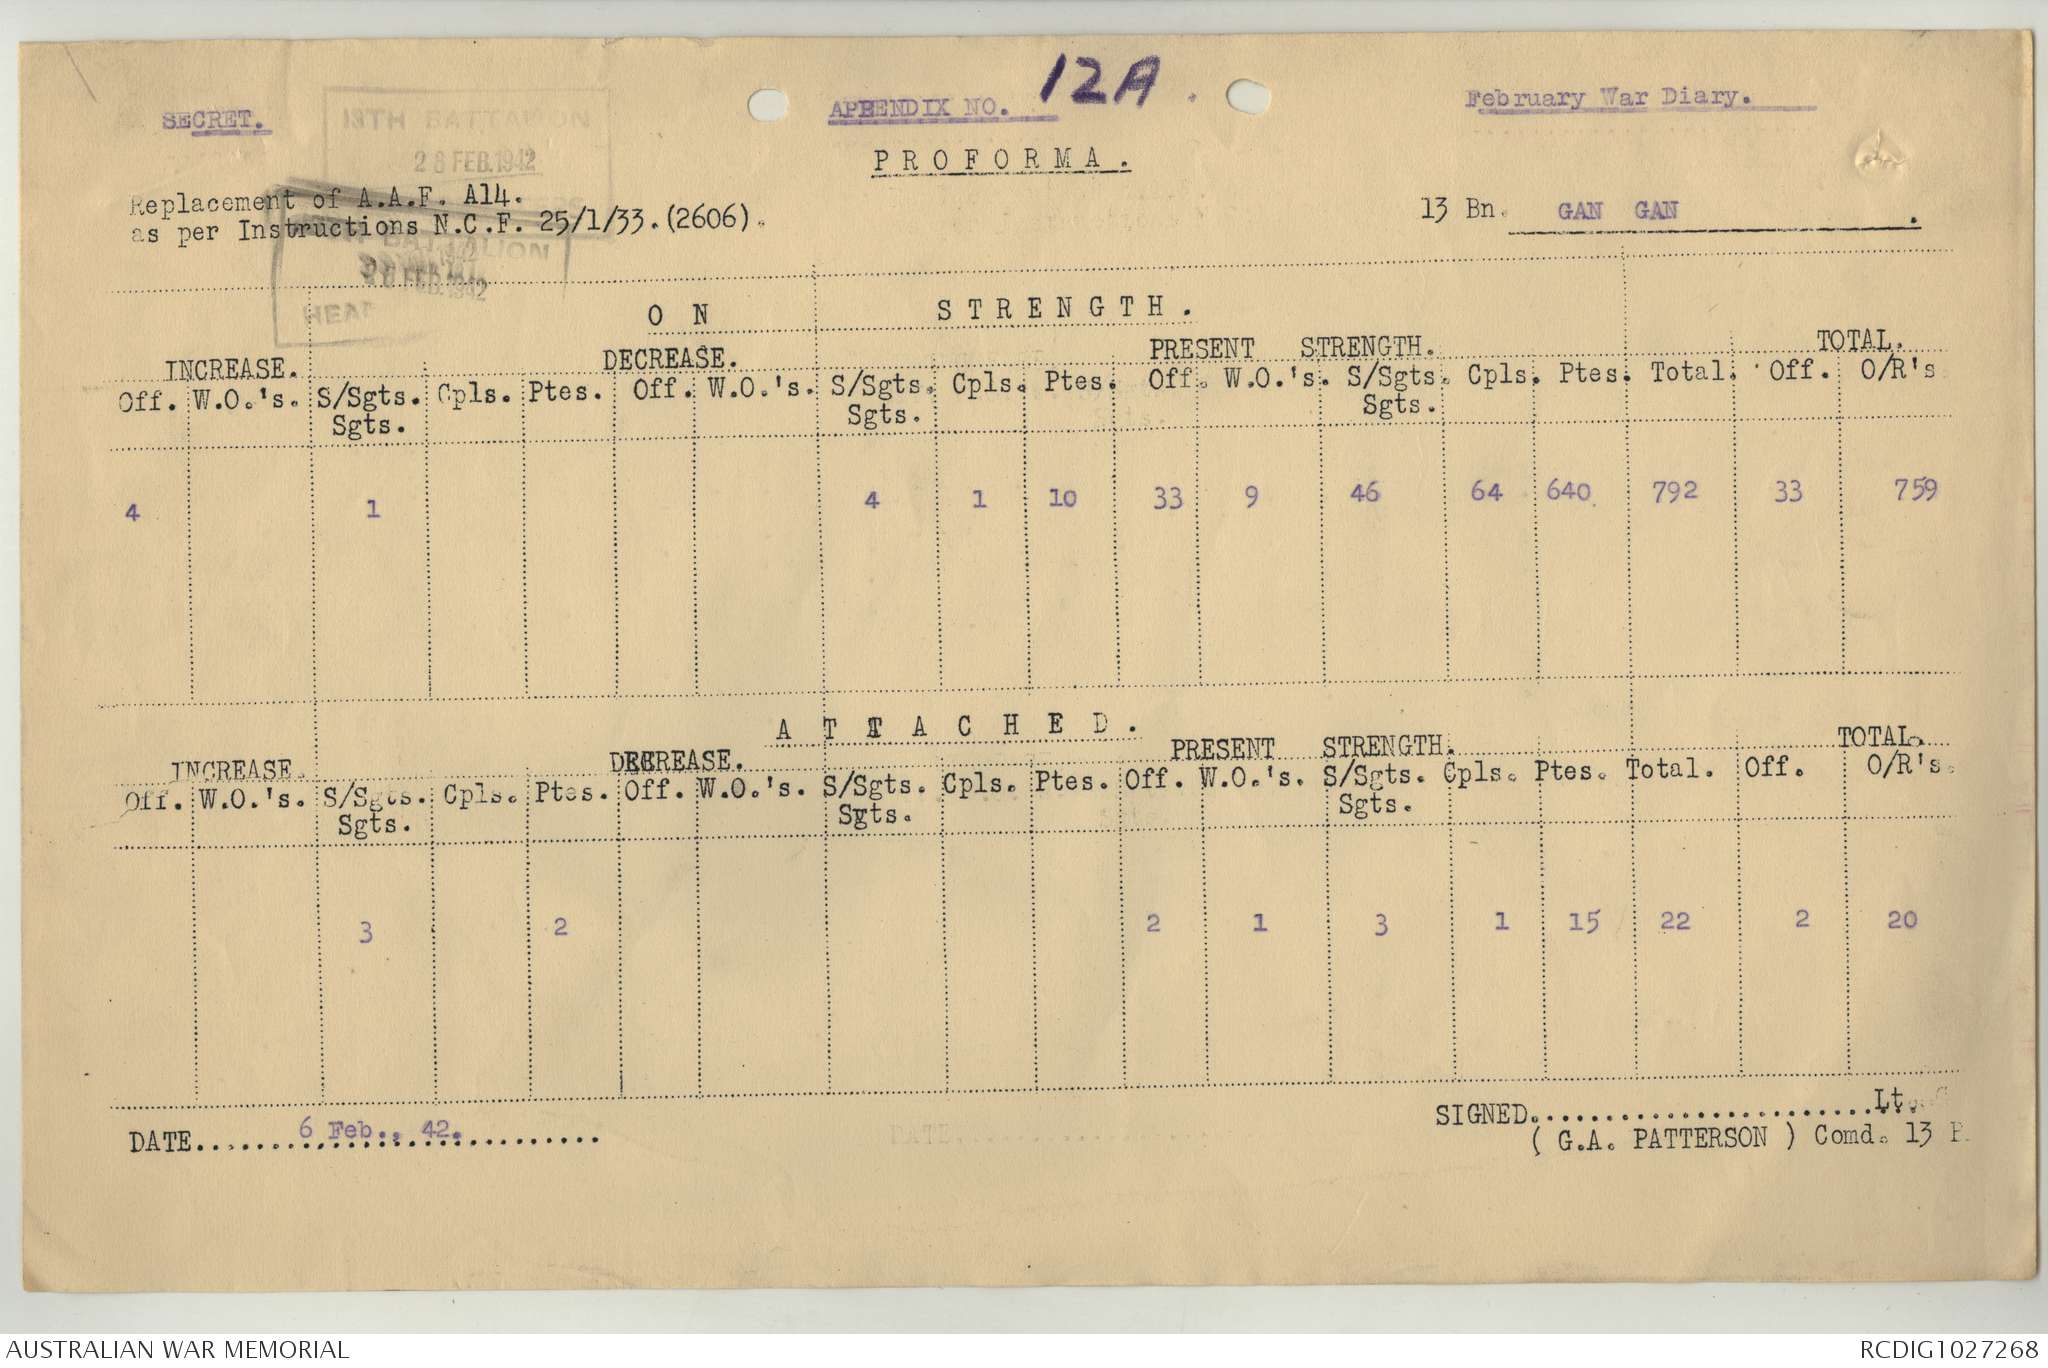 SECRET.
13TH BATTALION
28 FEB. 1942
APPENDIX NO. 12A.
February War Diary.
PROFORMA.
Replacement of A.A.F. A14.
as per Instructions N.C.F. 25/1/33.(2606).
13 Bn. GAN GAN .
BATTALION
28 FEB. 1942
ON STRENGTH.
INCREASE. DECREASE. PRESENT STRENGTH. TOTAL.
Off. W.O.'s. S/Sgts. Cpls. Ptes. Off. W.O.'s. S/Sgts. Cpls. Ptes. Off. W.O.'s. S/Sgts. Cpls. Ptes. Total. Off. O/R's.
Sgts. Sgts. Sgts.
4 1 4 1 10 33 9 46 64 640 792 33 759
ATTACHED.
INCREASE. DECREASE. PRESENT STRENGTH. TOTAL.
Off. W.O.'s. S/Sgts. Cpls. Ptes. Off. W.O.'s. S/Sgts. Cpls. Ptes. Off. W.O.'s. S/Sgts. Cpls. Ptes. Total. Off. O/R's.
Sgts. Sgts. Sgts.
3 2 2 1 3 1 15 22 2 20
DATE..... 6 Feb., 42. .....
SIGNED........................Lt.
( G.A. PATTERSON ) Comd. 13
AUSTRALIAN WAR MEMORIAL
RCDIG1027268